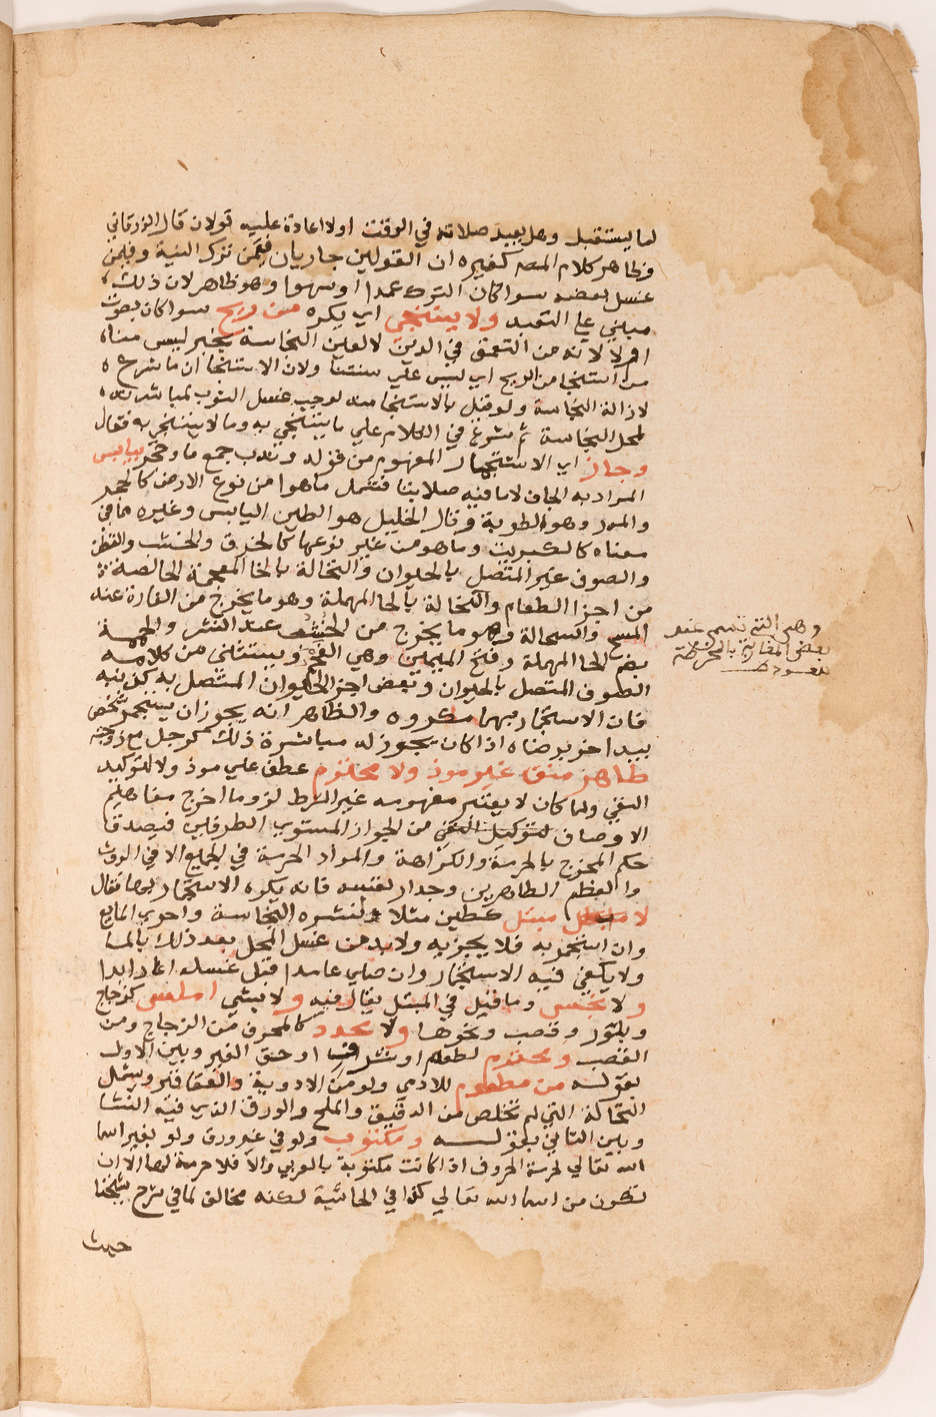 لما يستقبل وهل يعيد صلاته في الوقت اولا اعادة عليه قولان قال الزرقاني
وظاهر كلام المص كغيره ان القولين جاريان فيمن ترك النية وفيمن
غسل بعضه سوا كان الترك عمدا او سهوا وهو ظاهر لان ذلك
مبني علي التعبد ولا يستنجي اي يكره من ريح سوا كان بصوت
ام لا لانه من التعمق في الدين لا لعين النجاسة بخبر ليس منا
من استنجا من الريح اي ليس علي سنتنا ولان الاستنجا ان ما شرع
لازالة النجاسة ولو قيل بالاستنجا منه لوجب غسل الثوب
لمحل النجاسة ثم شرع في الكلام علي ما يستنجي به وما لا يستنجي به فقال
وجاز اي الاستجمار المفهوم من قوله وندب جمع ما وحجر بيابس
المراد به الجاف لا ما فيه صلابة فشمل ما هو من نوع الارض كالحجر
والمدر وهو الطوبة وقال الخليل هو الطين اليابس وغيره مما في
معناه كالكبريت وما هو من غير نوعها كالخرق والخشب والقطن
والصوف غير المتصل بالحيوان والنخالة بالخا المعجمة الخالصة
من اجزا الطعام والنحالة بالحا المهملة وهو ما يخرج من الفارة عند
المسح والسحالة وهو ما يخرج من الخشب عند النشر والحممة
بضم الحا المهملة وفتح الميمين وهي الفحم ويستثني من كلامه
الصوف المتصل بالحيوان وبعض اجزا الحيوان المتصل به كذنبه
فان الاستجمار بهما مكروه والظاهر انه يجوز ان يستجمر شخص
بيد اخر برضاه اذا كان يجوز له مباشرة ذلك كرجل مع زوجته
طاهر منق غير موذ ولا محترم عطف علي موذ ولا لتوكيد
النفي ولما كان لا يعتبر مفهومه غير الشرط لزوما اخرج مفاهيم
الاوصاف من الجواز المستوي الطرفين فيصدق
حكم المخرج بالحرمة والكراهة والمراد الحرمة في الجميع الا في الروث
والعظم الطاهرين وجدار لنفسه فانه يكره الاستجمار بها فقال
لا مبتل كطين مثلا لنشره النجاسة واحري المايع
وان استجمر به فلا يجزيه ولابد من غسل المحل بعد ذلك بالما
ولا يكفي فيه الاستجمار وان صلي عامدا قبل غسله اعاد ابدا
ولا نجس وما قيل في المبتل يقال فيه ولا بشي املس كزجاج
وبلور وقصب ونحوها ولا محدد كالمحرف من الزجاج ومن
القصب ومحترم لطعم او شرف او حق الغير وبين الاول
بقوله من مطعوم للادمي ولو من الادوية والعقاقير وشمل
النخالة التي لم تخلص من الدقيق والملح والورق الذي فيه النشا
وبين الثاني بقوله ومكتوب ولو في غير ورق ولو بغير اسما
الله تعالي لحرمة الحروف اذا كانت مكتوبة بالعربي والا فلا حرمة لها الا ان
تكون من اسما الله تعالي كذا في الحاشية لكنه مخالف لما في شرح شيخنا
حيث
وهي التي تسمي عند
بعض المغاربة